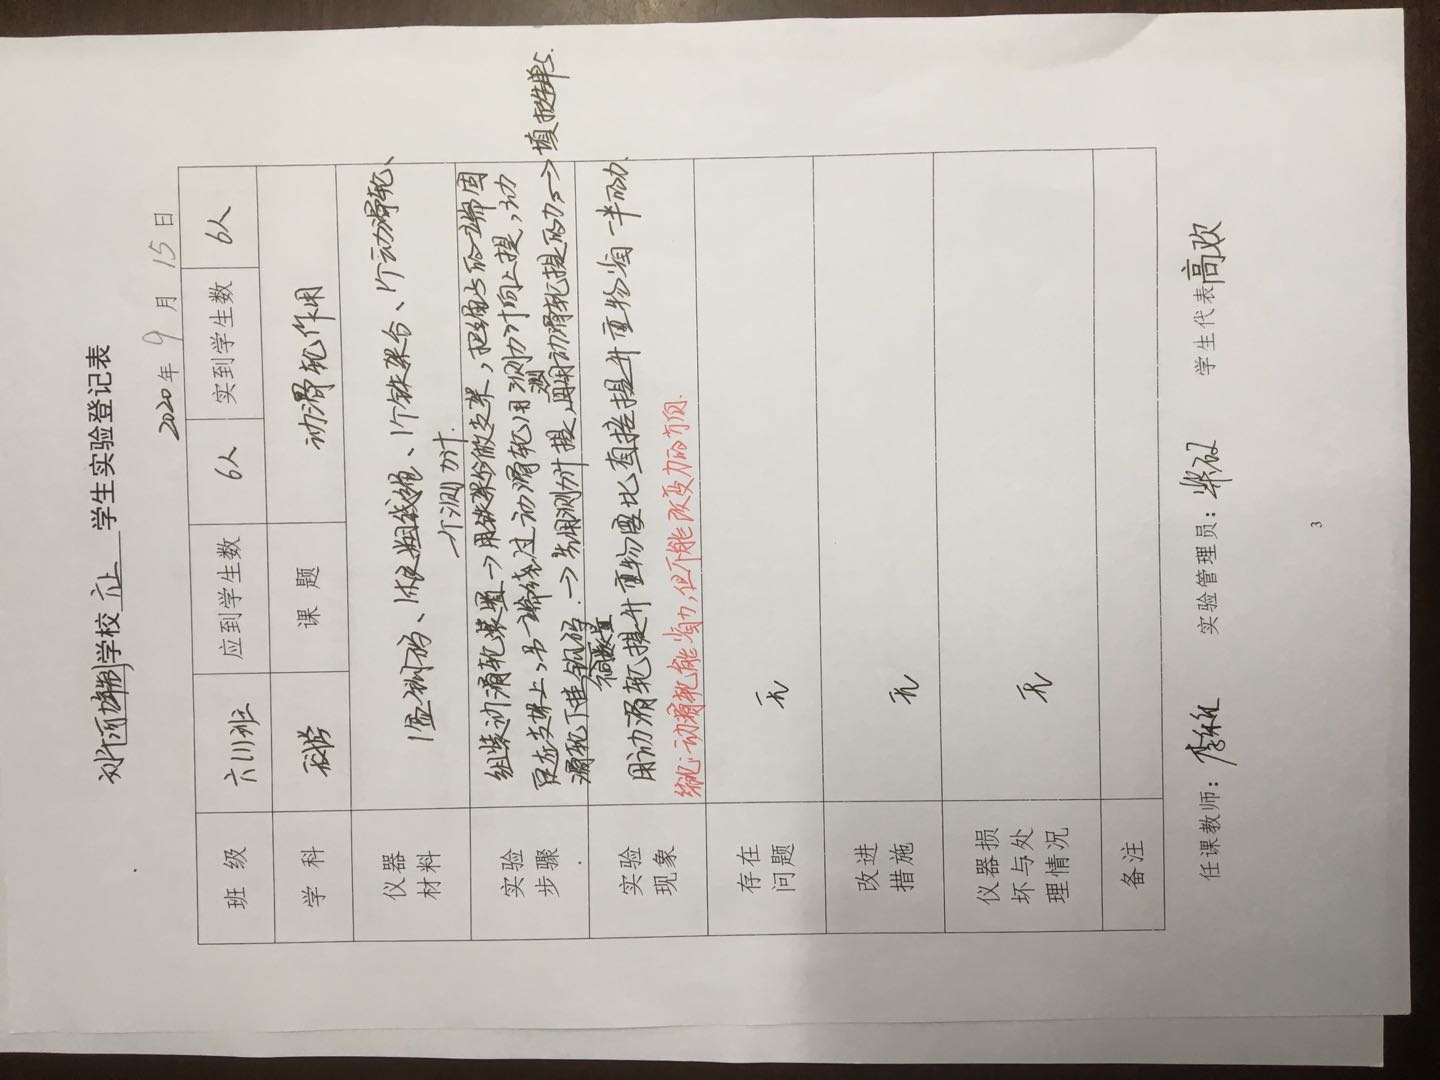 学校 六上 学生实验登记表
2020年 9 月 15 日
班 级 六(1)班 应到学生数 6人 实到学生数 6人
学 科 科学 课 题 动滑轮作用
仪器
材料
1盒钩码、1根粗线绳、1个铁架台、1个动滑轮、
一个测力计.
实验
步骤
组装动滑轮装置→用铁架台做支架,把绳子的一端固
定在支架上,另一端绕过动滑轮,用测力计向上提,动
滑轮下挂钩码.→先用测力计提,再用动滑轮提的力→填报告单。
实验
现象
用动滑轮提升重物要比直接提升重物省一半的力.
结论:动滑轮能省力,但不能改变力的方向.
存在
问题
无
改进
措施
无
仪器损
坏与处
理情况
无
备注
任课教师: 实验管理员: 学生代表 高欢
3